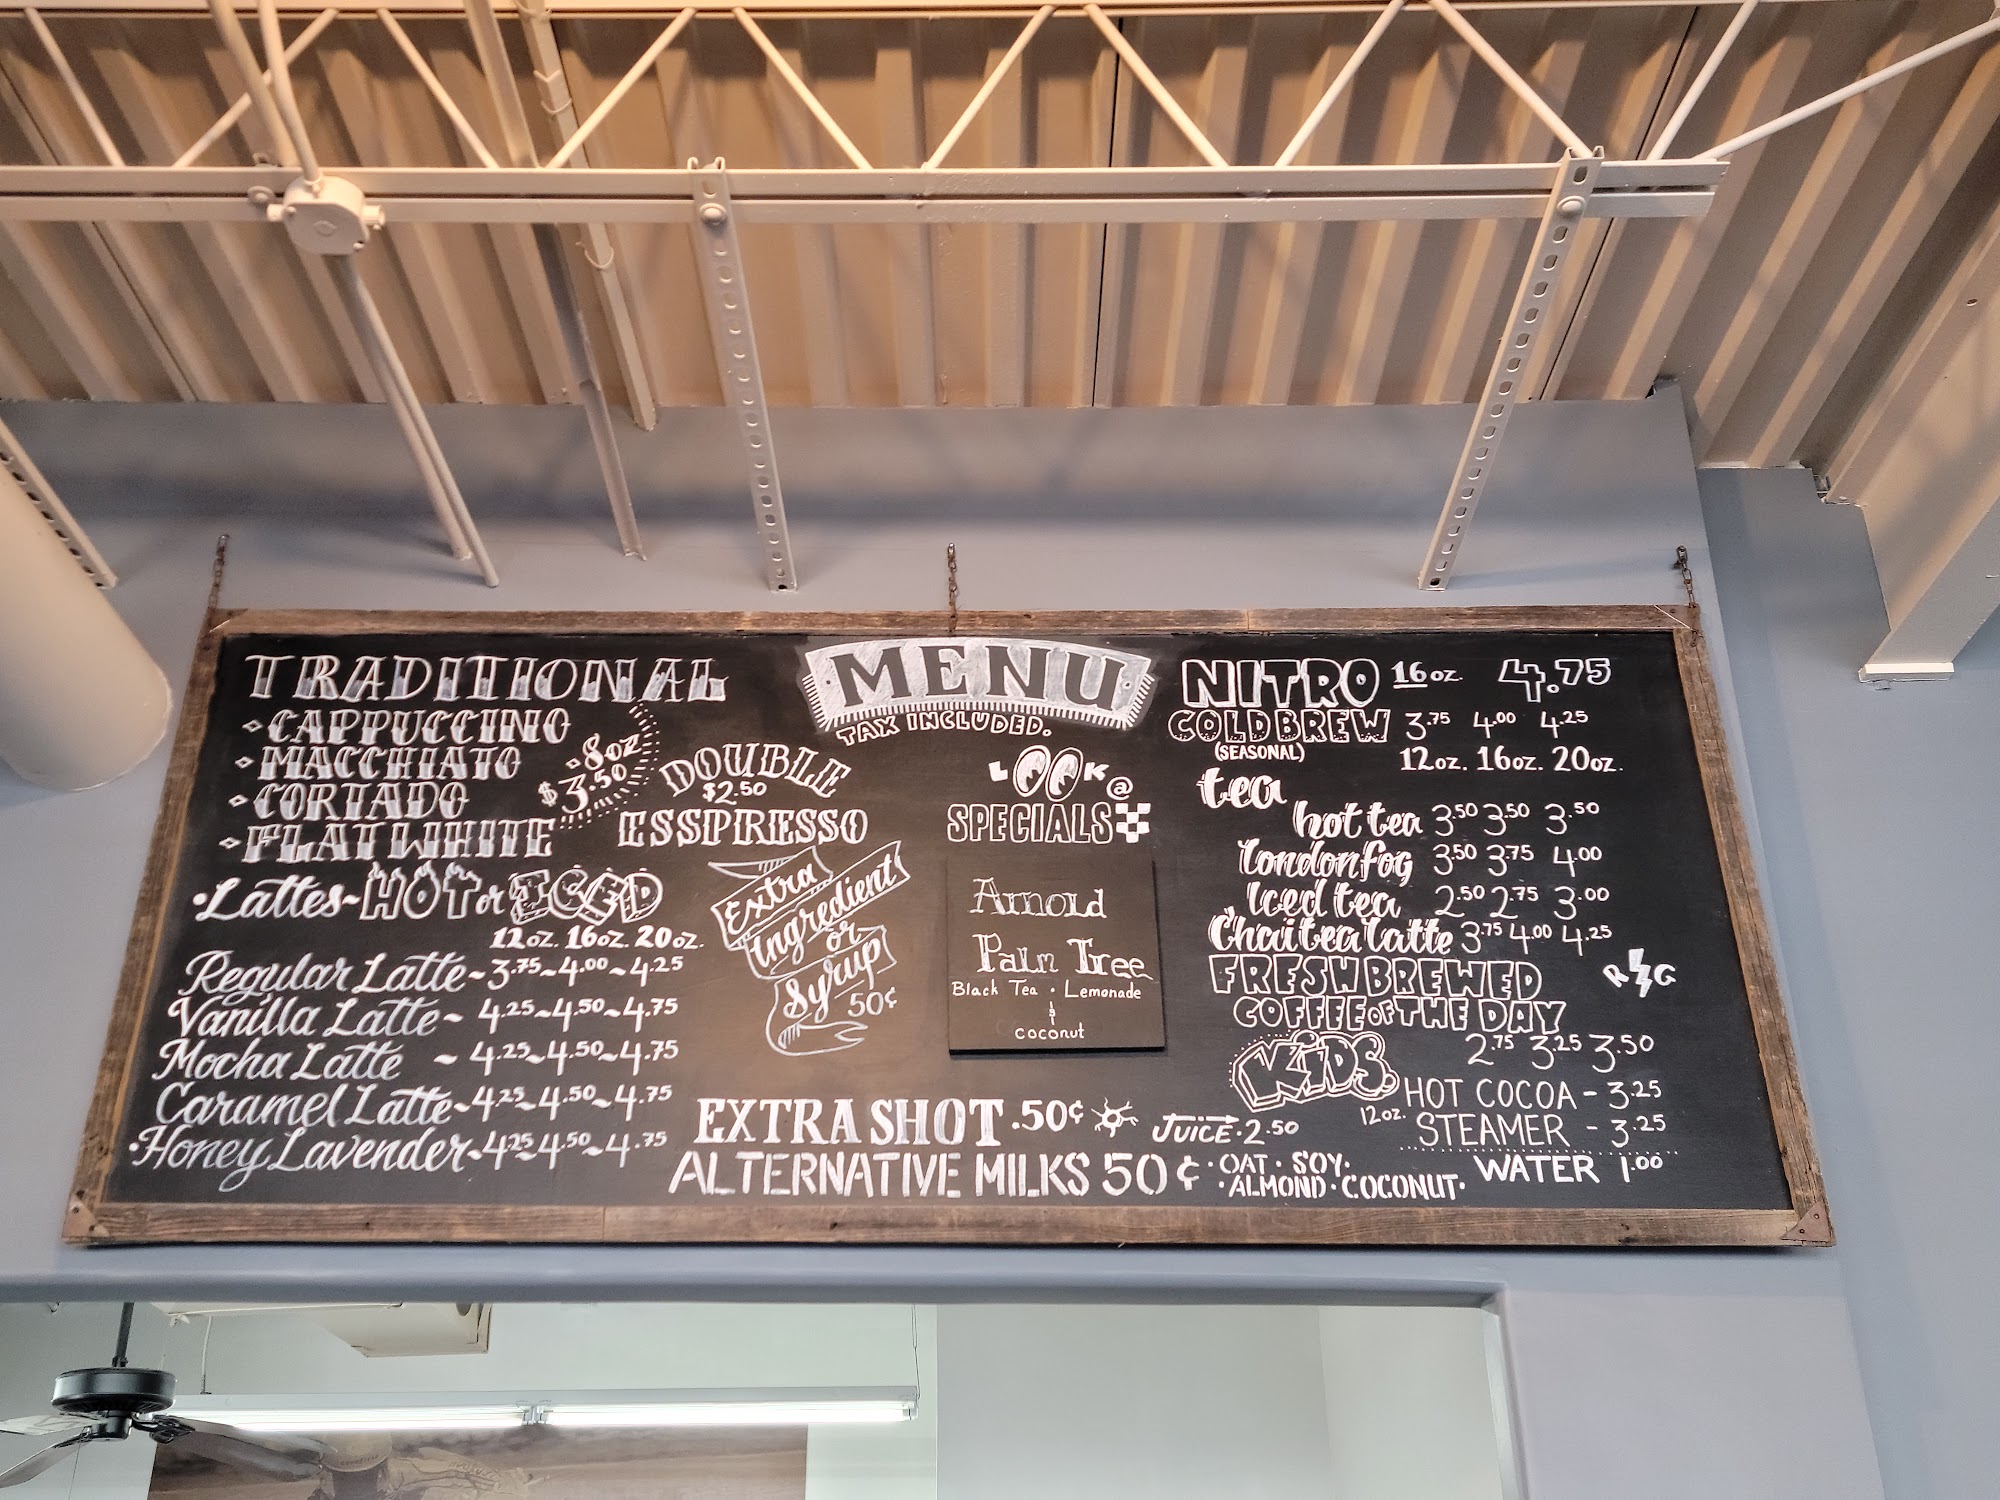 MENU
TAX INCLUDED.
TRADITIONAL
CAPPUCCINO
MACCHIATO
CORTADO
FLAT WHITE
.8oz
$3.50
DOUBLE
$2.50
ESSPRESSO
•Lattes~HOT or ICED
12oz. 16oz. 20oz.
Regular Latte~3.75~4.00~4.25
Vanilla Latte~ 4.25~4.50~4.75
Mocha Latte ~ 4.25~4.50~4.75
Caramel Latte~4.25~4.50~4.75
•Honey Lavender~4.25~4.50~4.75
Extra
ingredient
or
Syrup
50¢
LOOK @
SPECIALS
Arnold
Palm Tree
Black Tea • Lemonade
&
coconut
EXTRA SHOT .50¢
JUICE•2.50
ALTERNATIVE MILKS 50¢ •OAT • SOY•
•ALMOND•COCONUT•
NITRO 16oz. 4.75
COLD BREW 3.75 4.00 4.25
(SEASONAL)
12oz. 16oz. 20oz.
tea
hot tea 3.50 3.50 3.50
London fog 3.50 3.75 4.00
Iced tea 2.50 2.75 3.00
Chai tea latte 3.75 4.00 4.25
FRESH BREWED
COFFEE OF THE DAY
R G
2.75 3.25 3.50
KIDS
12oz.
HOT COCOA - 3.25
STEAMER - 3.25
WATER 1.00